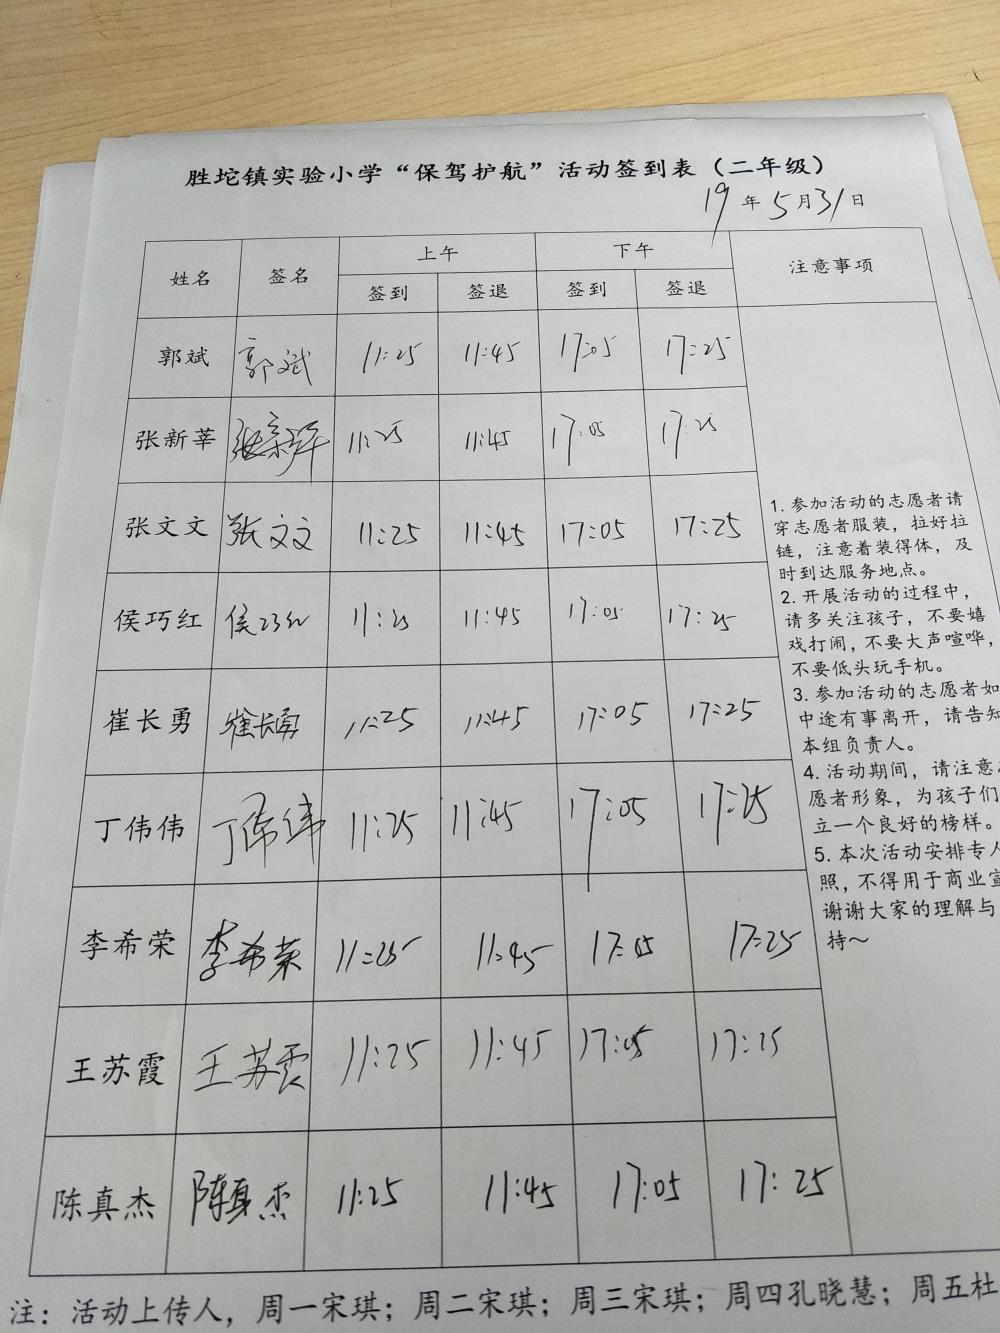 胜坨镇实验小学“保驾护航”活动签到表（二年级）
19年5月31日
姓名 签名 上午 下午 注意事项
签到 签退 签到 签退
郭斌 郭斌 11:25 11:45 17:05 17:25
张新莘 11:25 11:45 17:05 17:25
张文文 张文文 11:25 11:45 17:05 17:25
侯巧红 侯巧红 11:25 11:45 17:05 17:25
崔长勇 崔长勇 11:25 11:45 17:05 17:25
丁伟伟 丁伟伟 11:25 11:45 17:05 17:25
李希荣 李希荣 11:25 11:45 17:05 17:25
王苏霞 王苏霞 11:25 11:45 17:05 17:25
陈真杰 陈真杰 11:25 11:45 17:05 17:25
1. 参加活动的志愿者请
穿志愿者服装，拉好拉
链，注意着装得体，及
时到达服务地点。
2. 开展活动的过程中，
请多关注孩子，不要嬉
戏打闹，不要大声喧哗，
不要低头玩手机。
3. 参加活动的志愿者如
中途有事离开，请告知
本组负责人。
4. 活动期间，请注意
愿者形象，为孩子们
立一个良好的榜样。
5. 本次活动安排专人
照，不得用于商业宣
谢谢大家的理解与
持～
注：活动上传人，周一宋琪；周二宋琪；周三宋琪；周四孔晓慧；周五杜